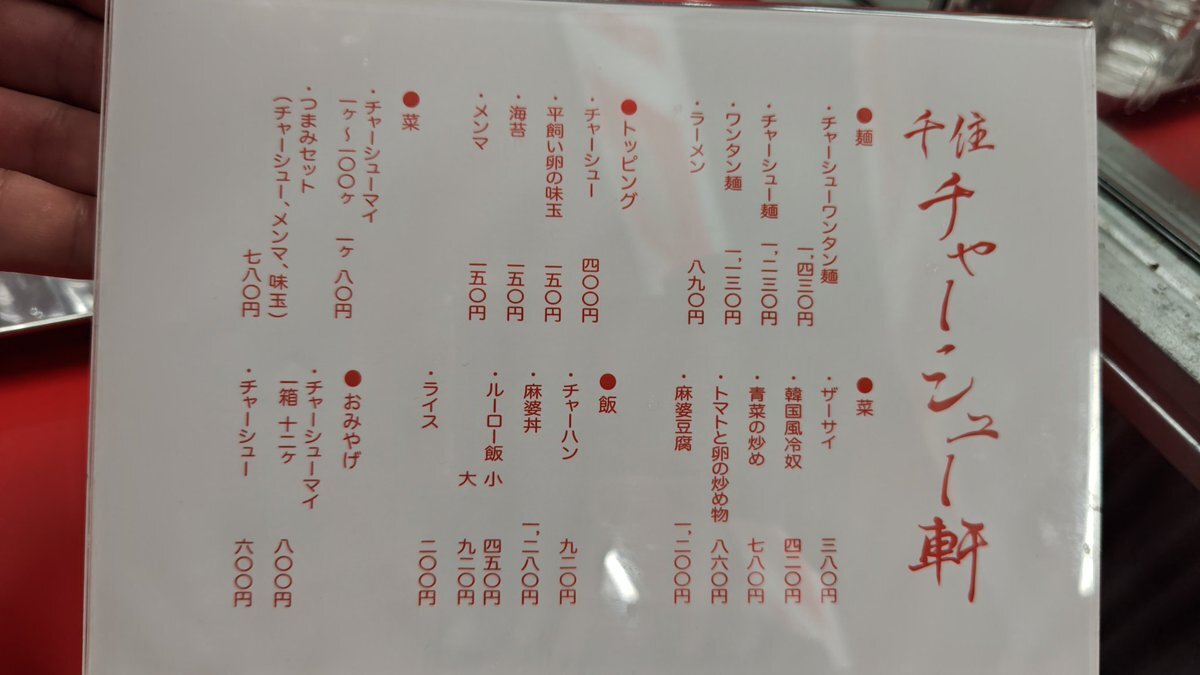 千住 チャーシュー軒
●麺
・チャーシューワンタン麺 一、四三〇円
・チャーシュー麺 一、二三〇円
・ワンタン麺 一、一三〇円
・ラーメン 八九〇円
●トッピング
・チャーシュー 四〇〇円
・平飼い卵の味玉 一五〇円
・海苔 一五〇円
・メンマ 一五〇円
●菜
・チャーシューマイ
一ヶ〜一〇〇ヶ 一ヶ 八〇円
・つまみセット
(チャーシュー、メンマ、味玉)
七八〇円
●菜
・ザーサイ 三八〇円
・韓国風冷奴 四二〇円
・青菜の炒め 七八〇円
・トマトと卵の炒め物 八六〇円
・麻婆豆腐 一、二〇〇円
●飯
・チャーハン 九二〇円
・麻婆丼 一、二八〇円
・ルーロー飯 小 四五〇円
大 九二〇円
・ライス 二〇〇円
●おみやげ
・チャーシューマイ
一箱 十二ヶ 八〇〇円
・チャーシュー 六〇〇円